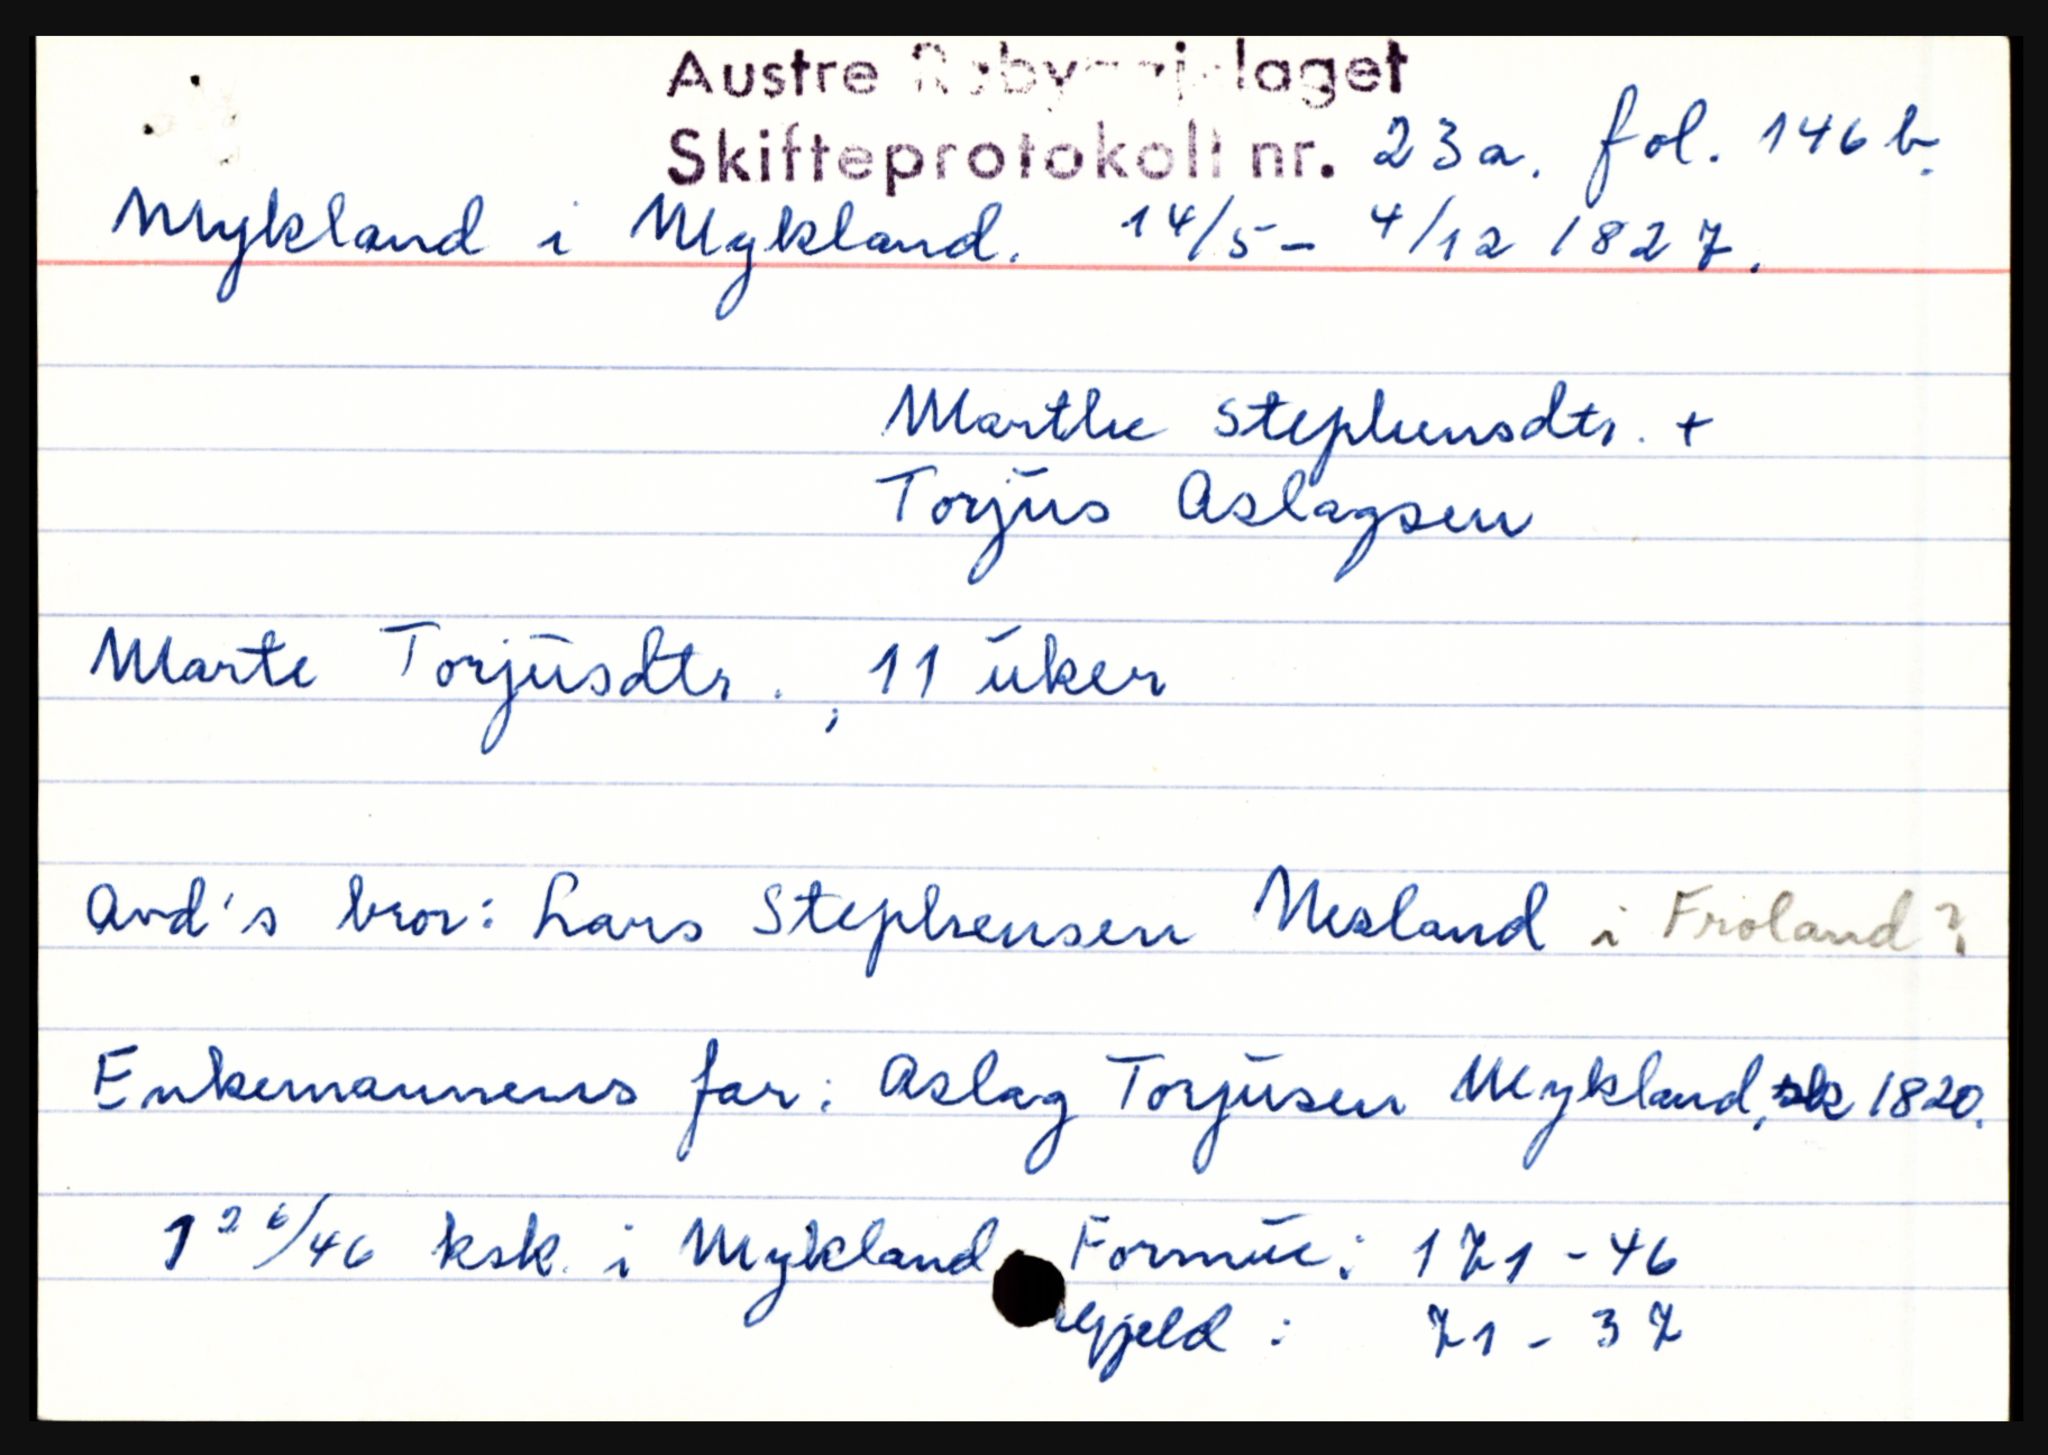 Austre Robyggjelaget
Skifteprotokoll nr. 23a. fol. 146 b.
Mykland i Mykland. 14/5 - 4/12 1827.
Marthe Stephensdtr. +
Torjus Aslagsen
Marte Torjusdtr. ; 11 uker
Avd's bror: Lars Stephensen Nesland i Froland?
Enkemannens far: Aslag Torjusen Mykland, sk 1820.
1 26/46 ksk. i Mykland Formue: 171 - 46
Gjeld : 71 - 37